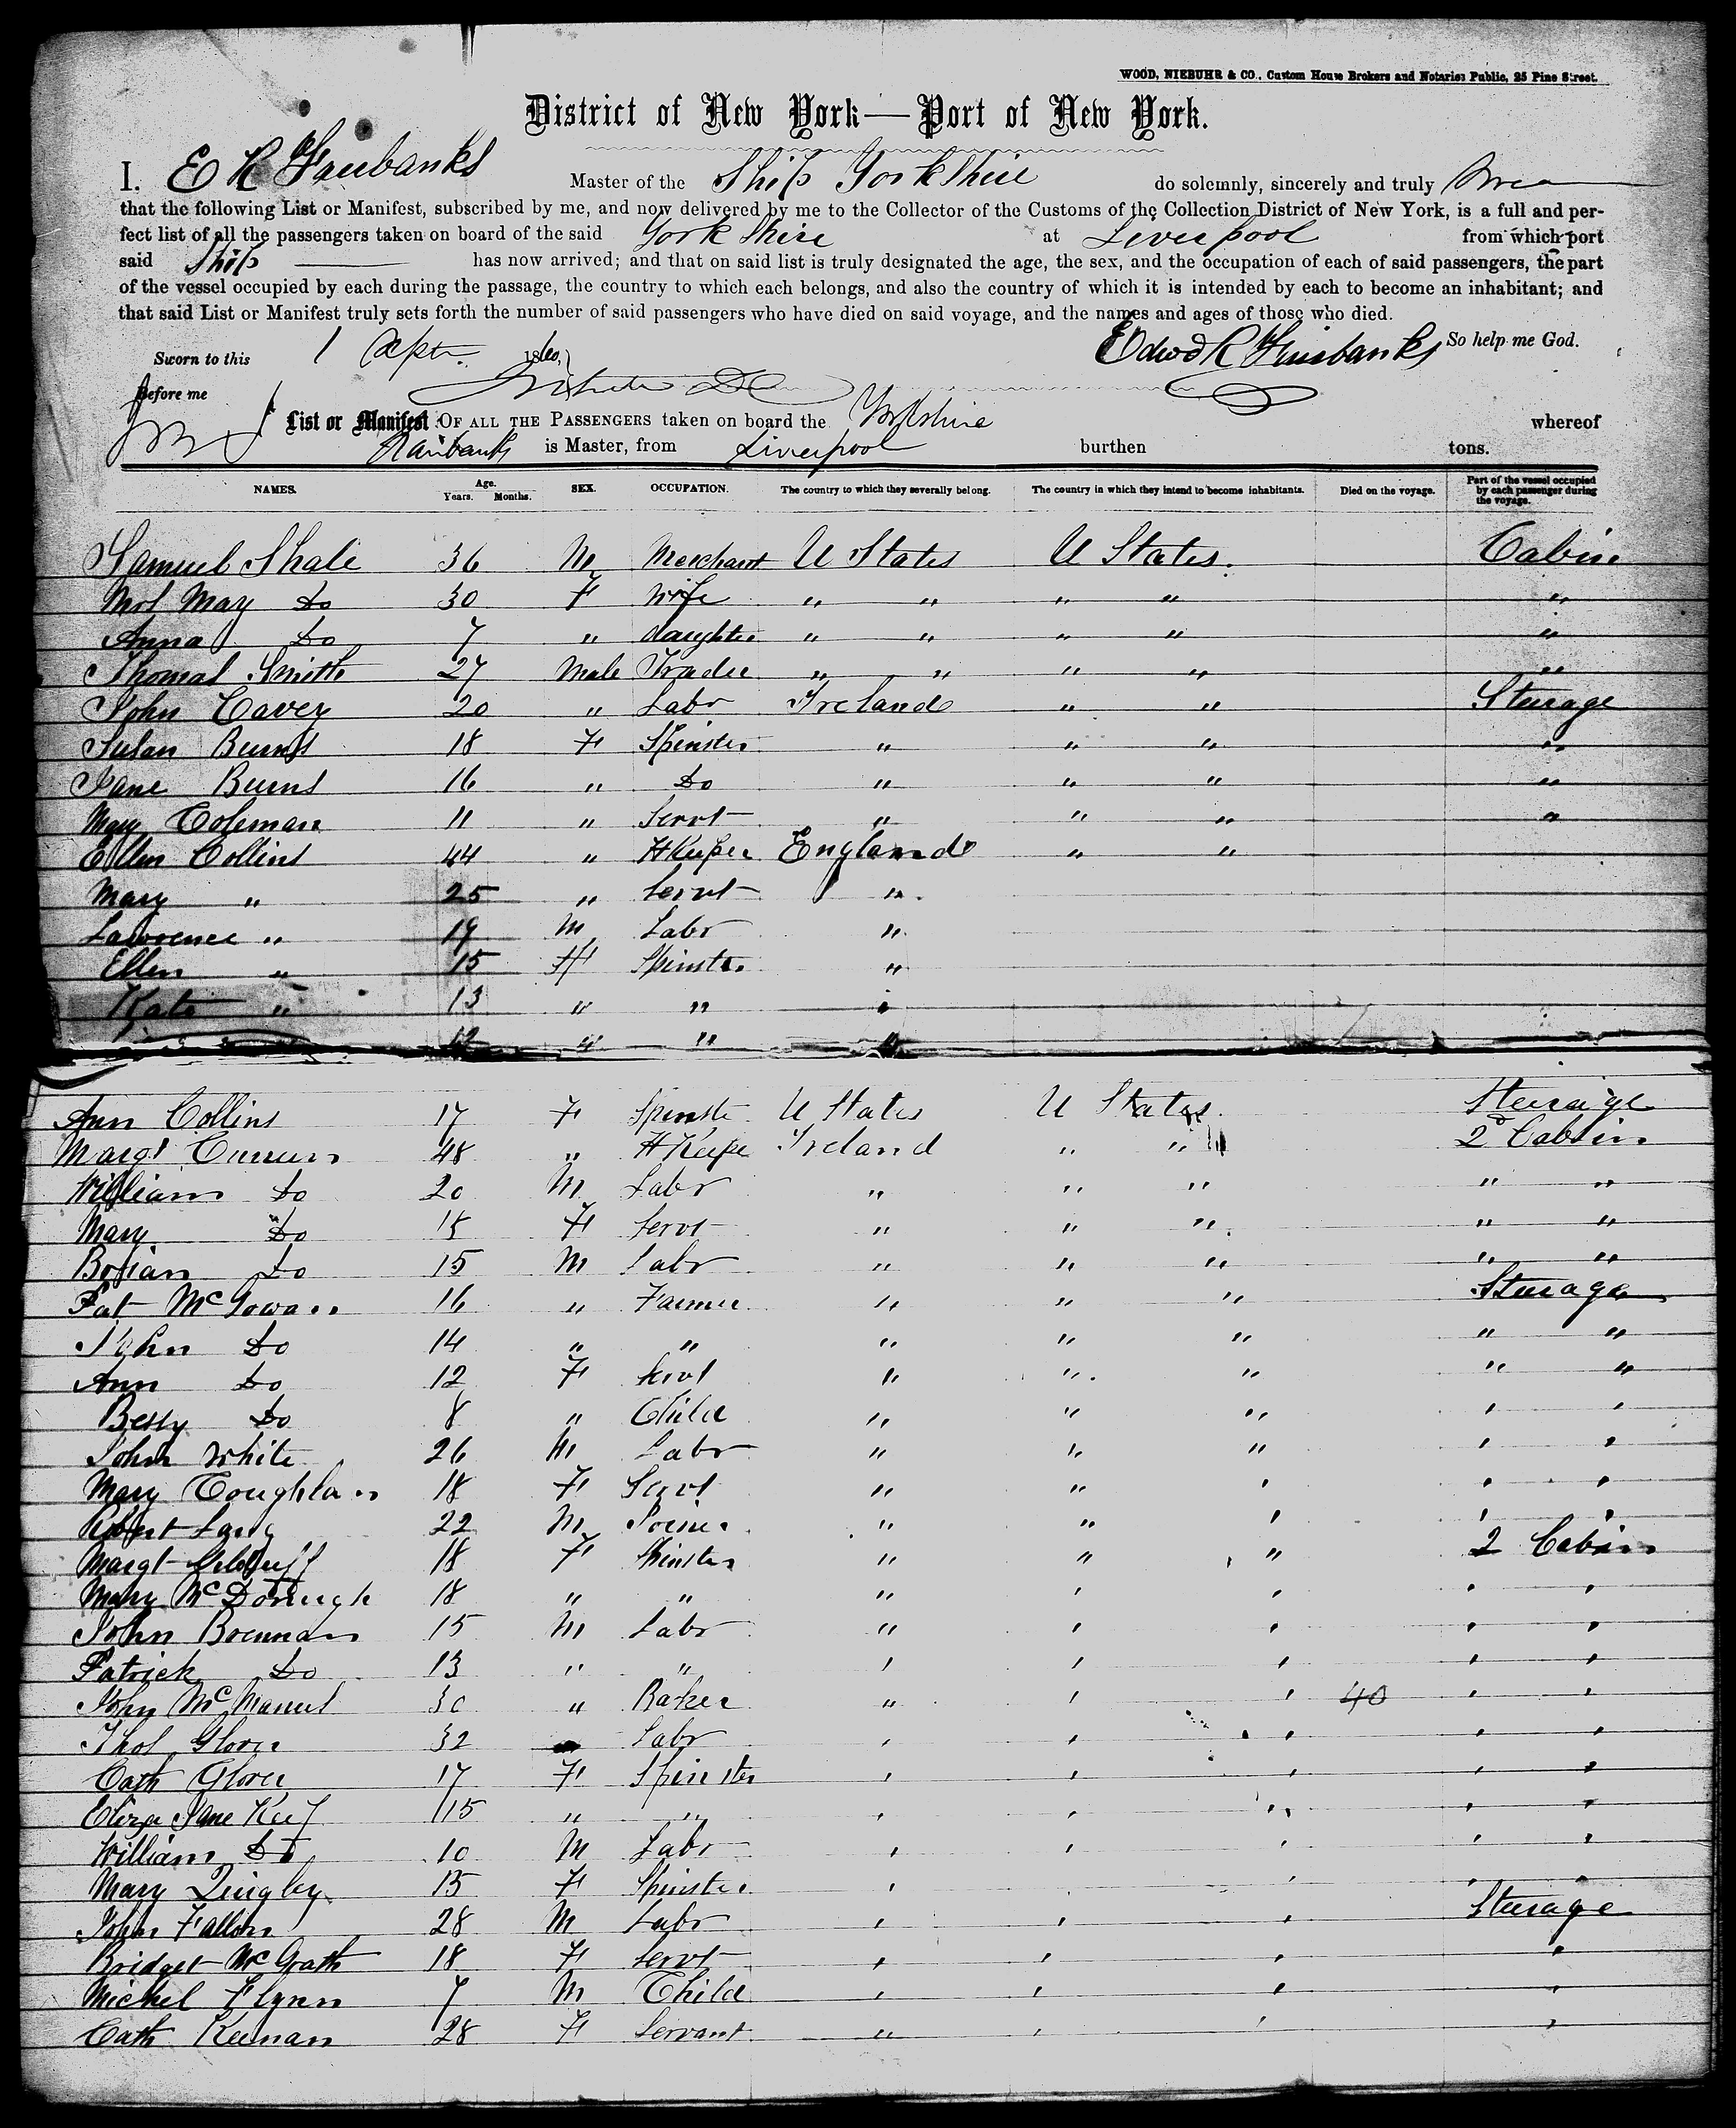 WOOD, NIEBUHR & CO., Custom House Brokers and Notaries Public, 25 Pine Street.
District of New York—Port of New York.
I. E R Fairbanks Master of the Ship Yorkshire do solemnly, sincerely and truly
that the following List or Manifest, subscribed by me, and now delivered by me to the Collector of the Customs of the Collection District of New York, is a full and per-
fect list of all the passengers taken on board of the said Yorkshire at Liverpool from which port
said Ship has now arrived; and that on said list is truly designated the age, the sex, and the occupation of each of said passengers, the part
of the vessel occupied by each during the passage, the country to which each belongs, and also the country of which it is intended by each to become an inhabitant; and
that said List or Manifest truly sets forth the number of said passengers who have died on said voyage, and the names and ages of those who died.
Sworn to this 1 1860, Edwd R Fairbanks So help me God.
Before me
List or Manifest OF ALL THE PASSENGERS taken on board the Yorkshire whereof
Fairbanks is Master, from Liverpool burthen tons.
NAMES. Age. Years. Months. SEX. OCCUPATION. The country to which they severally belong. The country in which they intend to become inhabitants. Died on the voyage. Part of the vessel occupied by each passenger during the voyage.
Samuel Shale 36 M Merchant U States U States. Cabin
Mrs May Do 30 F Wife " " " " "
Anna Do 7 " daughter " " " " "
Thomas Smith 27 Male Trader " " " " "
John Cavey 20 " Labr Ireland " " Steerage
Susan Burns 18 F Spinster " " " "
Jane Burns 16 " Do " " " "
Mary Coleman 11 " Servt " " " "
Ellen Collins 44 " HKeeper England " "
Mary " 25 " Servt "
Lawrence " 19 M Labr "
Ellen " 15 F Spinster "
Kate " 13 " " "
12 " " "
Ann Collins 17 F Spinstr U States U States. Steerage
Margt 48 " HKeepr Ireland " " 2d Cabin
William Do 20 M Labr " " " " "
Mary Do 18 F Servt " " " " "
Do 15 M Labr " " " " "
Pat McGowan 16 " Farmer " " " Steerage
John Do 14 " " " " " " "
Ann Do 12 F Servt " " " " "
Bessy Do 8 " Child " " " " "
John White 26 M Labr " " " " "
Mary Coughlan 18 F Servt " " " " "
Robert Lang 22 M " " " " "
Margt 18 F Spinster " " " 2 Cabin
Mary McDonugh 18 " " " " " " "
John Brennan 15 M Labr " " " " "
Patrick Do 13 " " " " " " "
John McManus 30 " Baker " " " 40 " "
Thos Glover 32 Labr " " " " "
Cath Glover 17 F Spinster " " " " "
Eliza Jane Keef 15 " " " " " " "
William Do 10 M Labr " " " " "
Mary 15 F Spinster " " " "
John Fallon 28 M Labr " " " Steerage
Bridget McGrath 18 F Servt " " " "
Michel Flynn 7 M Child " " " "
Cath Keenan 28 F Servant " " " "